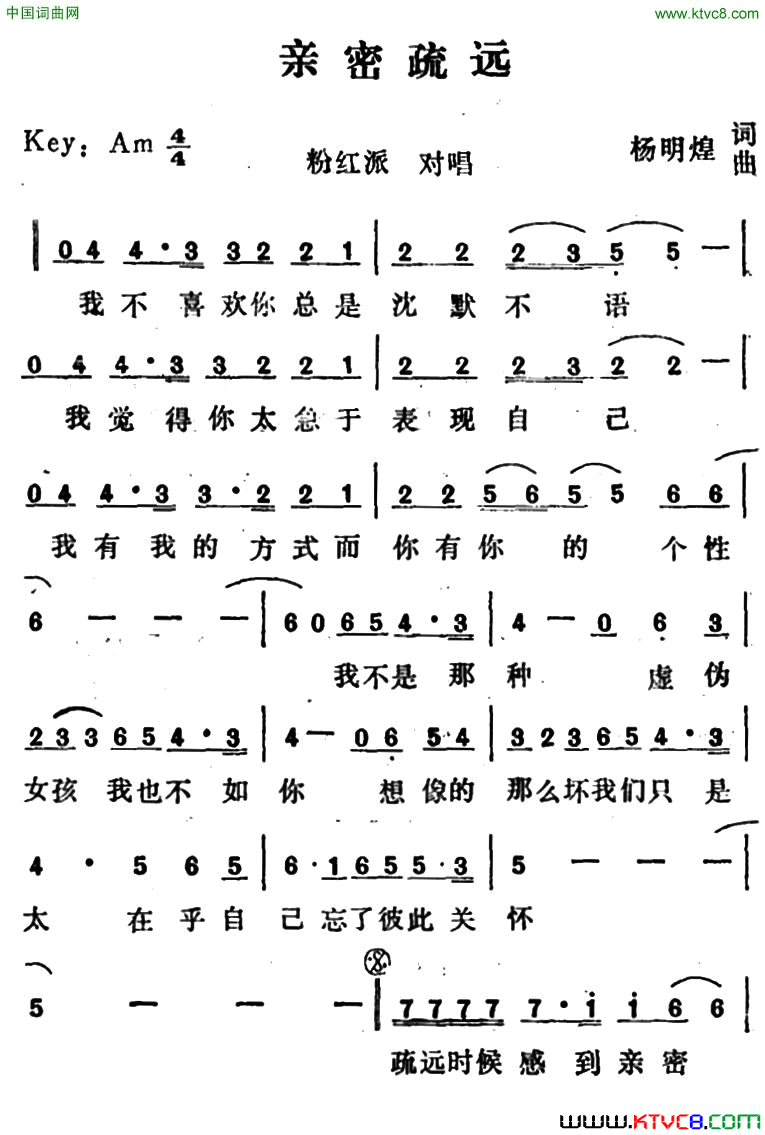 中国词曲网
www.ktvc8.com
亲密疏远
Key: Am 4/4
粉红派 对唱
杨明煌 词曲
04 4·3 32 21 | 2 2 23 5 5 — |
我不喜欢你总是沈默不语
04 4·3 32 21 | 2 2 23 2 2 — |
我觉得你太急于表现自己
04 4·3 3·2 21 | 22 56 5 5 66 |
我有我的方式而你有你的个性
6 — — — | 60 65 4·3 | 4 — 0 6 3 |
我不是那种虚伪
233 65 4·3 | 4 — 06 54 | 323 65 4·3 |
女孩我也不如你想像的那么坏我们只是
4 · 5 6 5 | 6·1 65 5·3 | 5 — — — |
太在乎自己忘了彼此关怀
5 — — — | 7777 7·i i 6 6 |
疏远时候感到亲密
www.KTVC8.com